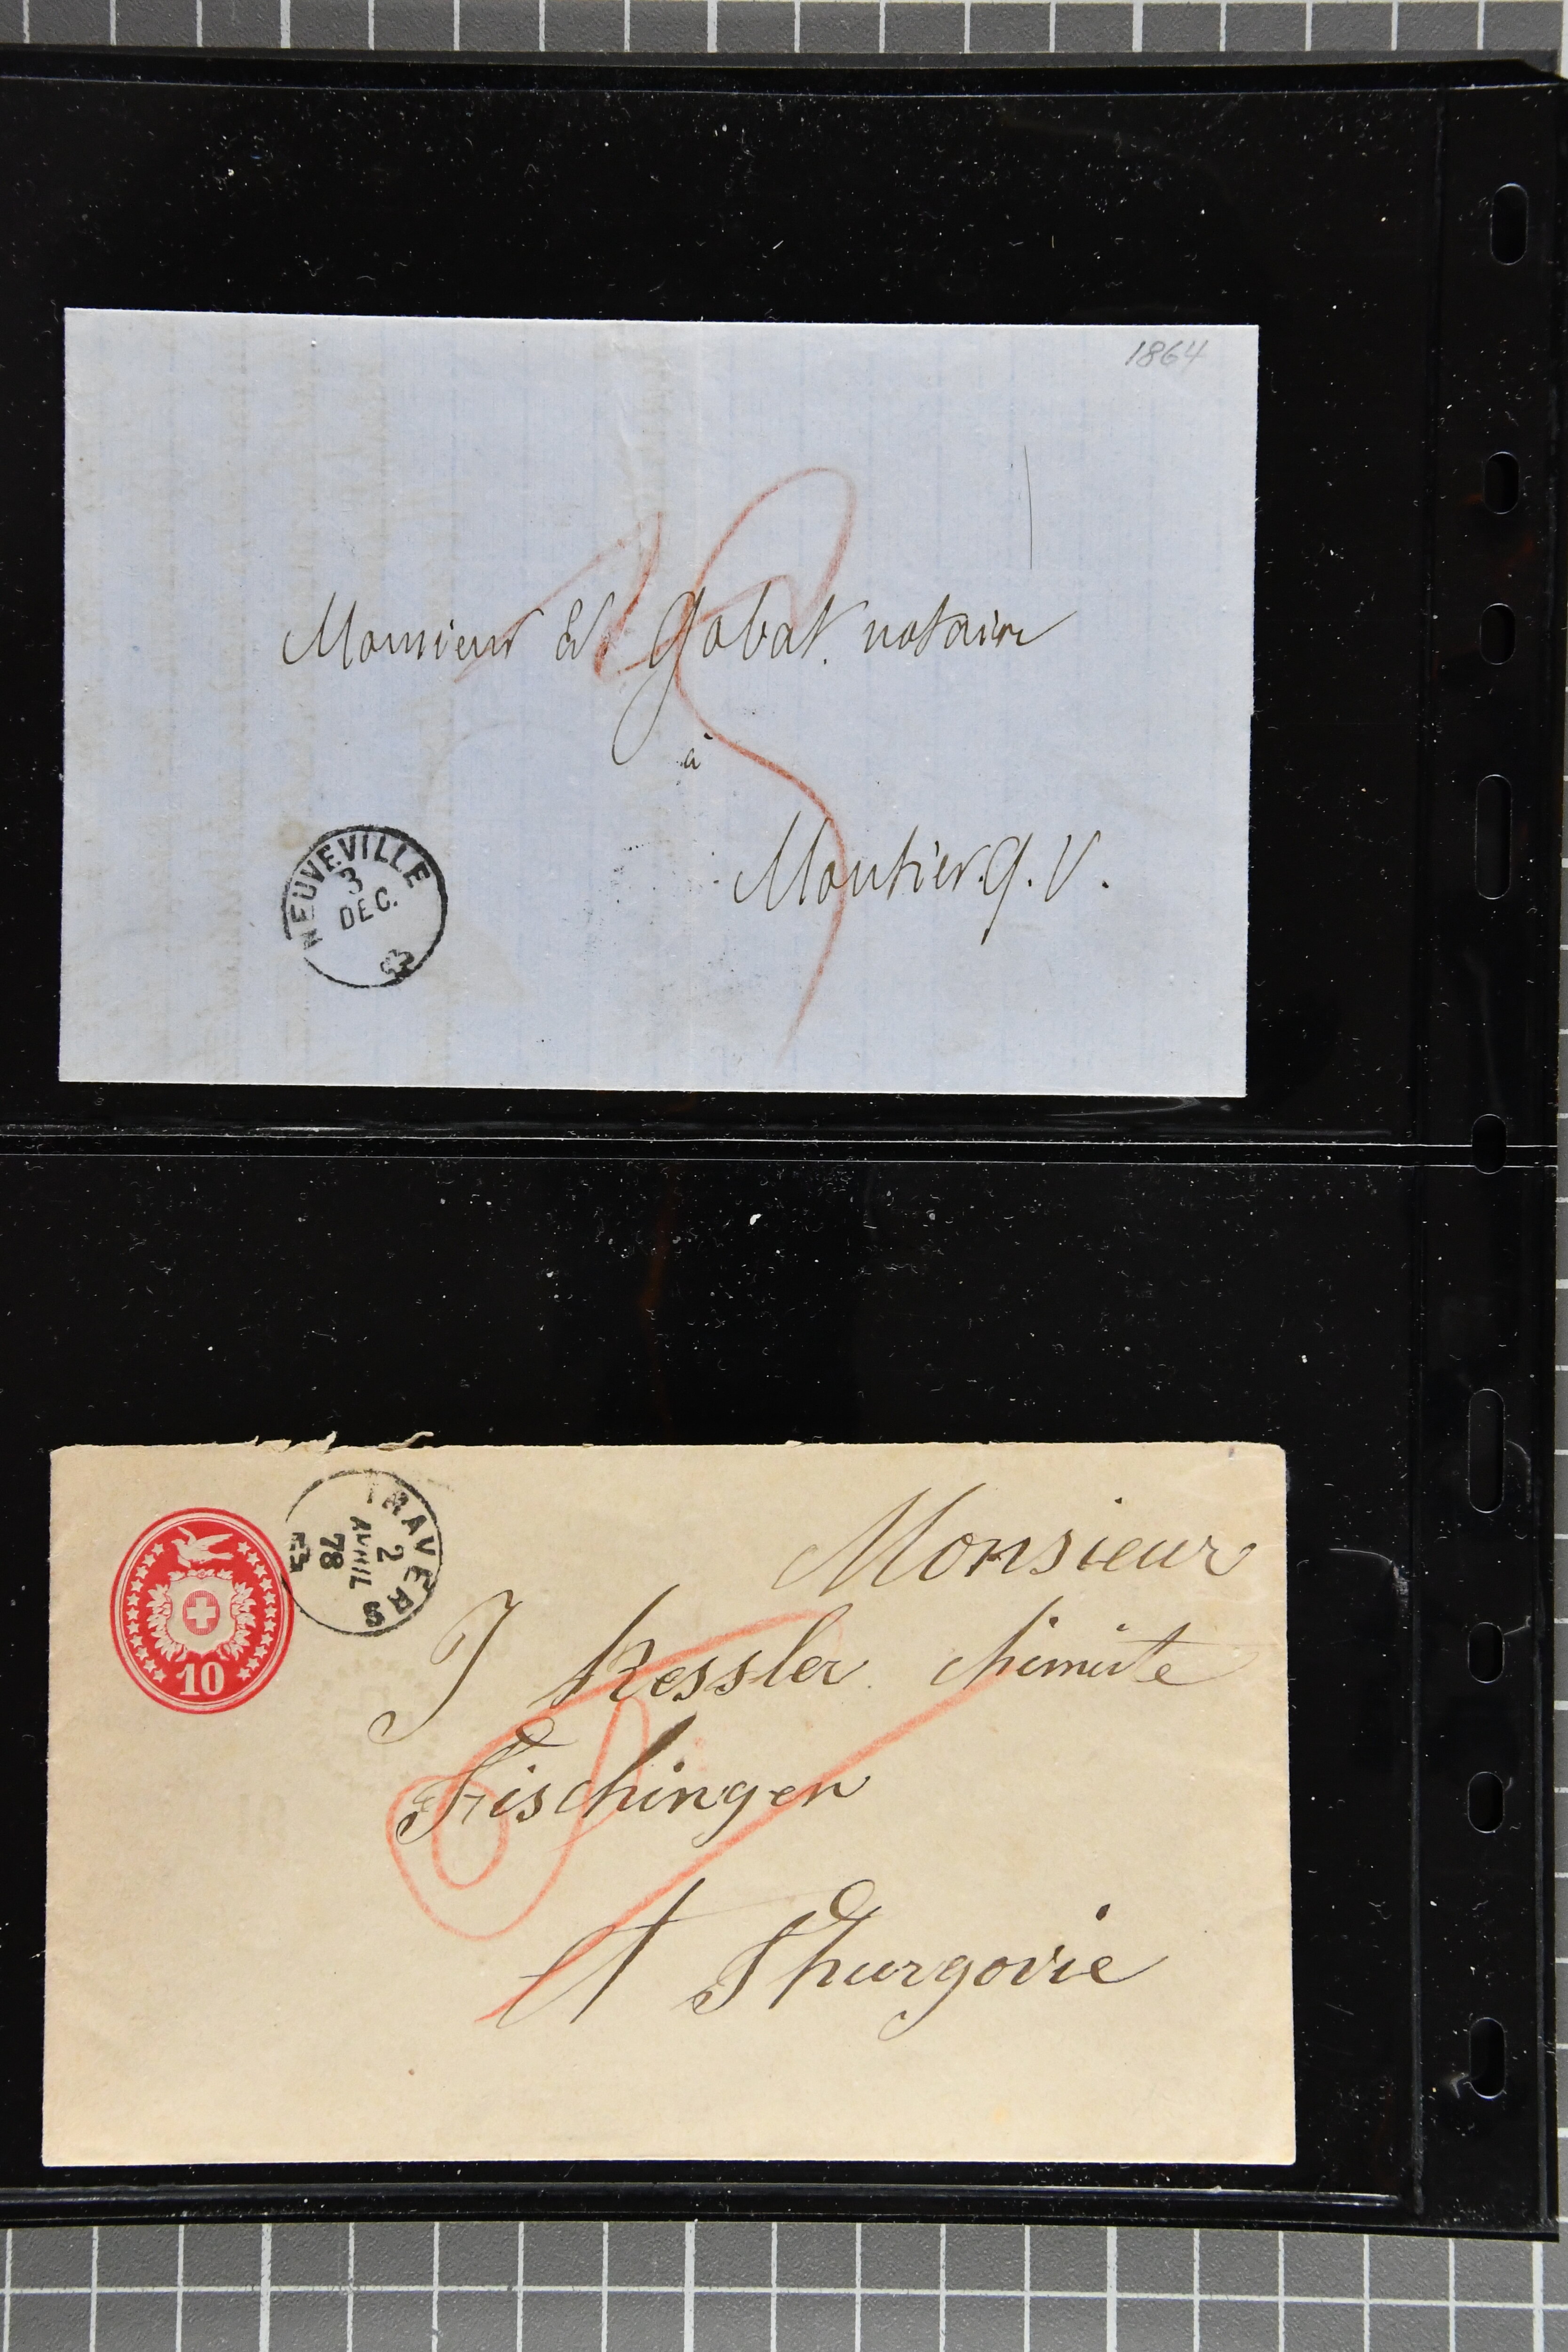 1864
Monsieur Ed Gobat. notaire
à
Moutier. G. V.
NEUVEVILLE
3
DEC.
TRAVERS
2
AVRIL
78
10
Monsieur
J Kessler chimiste
Fischingen
Ct Thurgovie